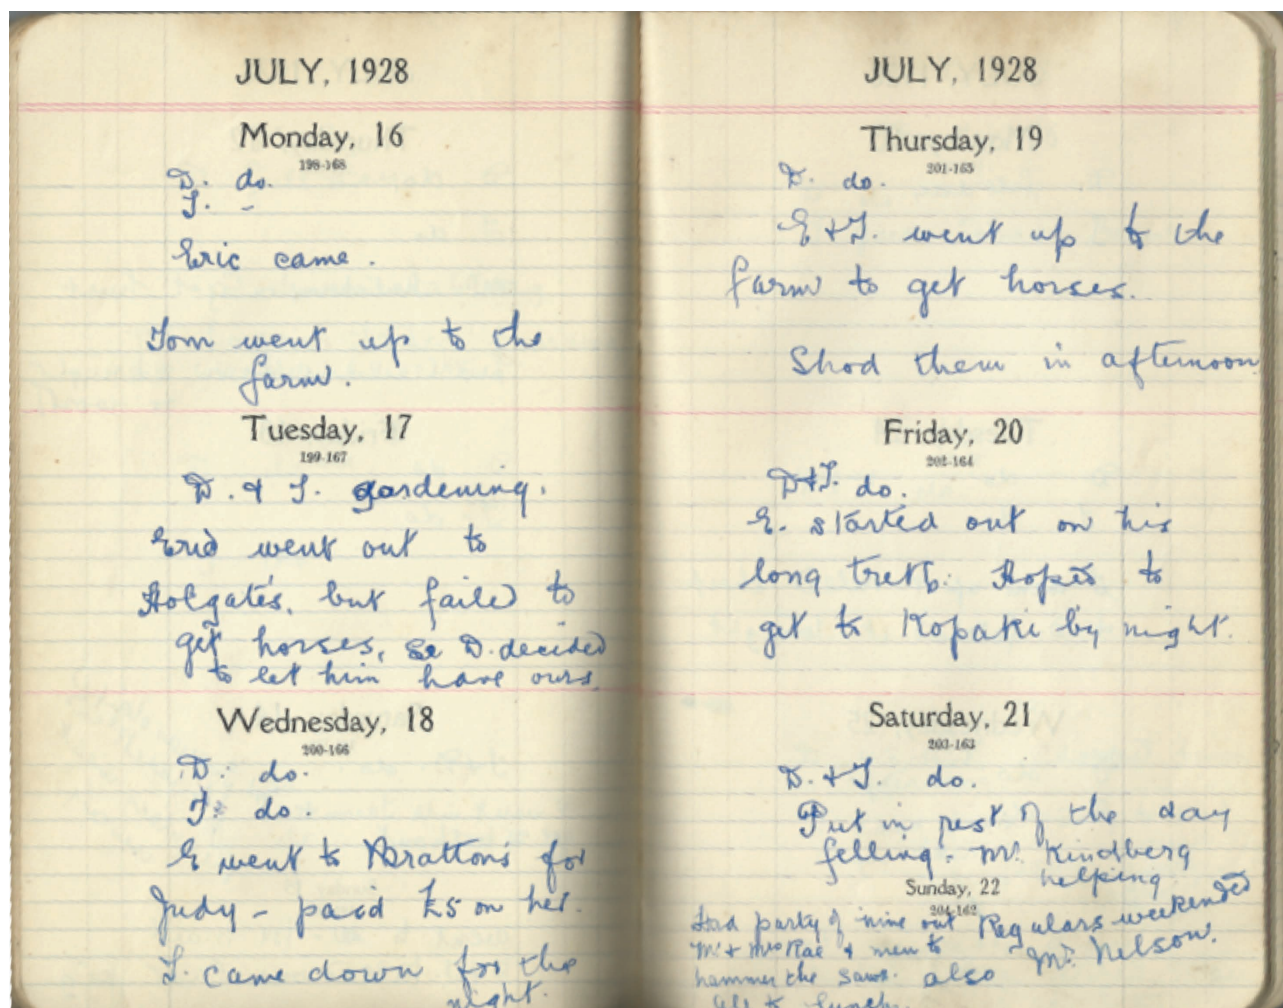 JULY, 1928
Monday, 16
198-168
D. do.
T. -
Eric came.
Tom went up to the
farm.
Tuesday, 17
199-167
D. & T. gardening.
Eric went out to
Holgate's, but failed to
get horses, so D. decided
to let him have ours.
Wednesday, 18
200-166
D. do.
T. do.
E went to Bratton's for
Judy - paid £5 on her.
T. came down for the
night.
JULY, 1928
Thursday, 19
201-165
D. do.
E & T. went up to the
farm to get horses.
Shod them in afternoon
Friday, 20
202-164
D & T. do.
E. started out on his
long trek. Hopes to
get to Kopaki by night.
Saturday, 21
203-163
D. & T. do.
Put in rest of the day
felling. Mr. Kindberg
helping
Sunday, 22
204-162
Had party of nine out Regulars weekended
Mr & Mrs Rae & men to
hammer the saws. also Mr. Nelson.
to lunch.